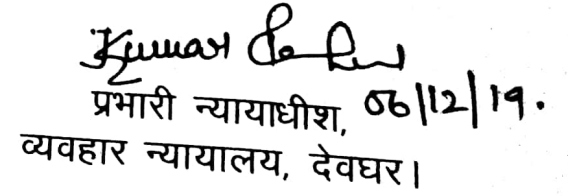 Kumar
प्रभारी न्यायाधीश, 06/12/19.
व्यवहार न्यायालय, देवघर।